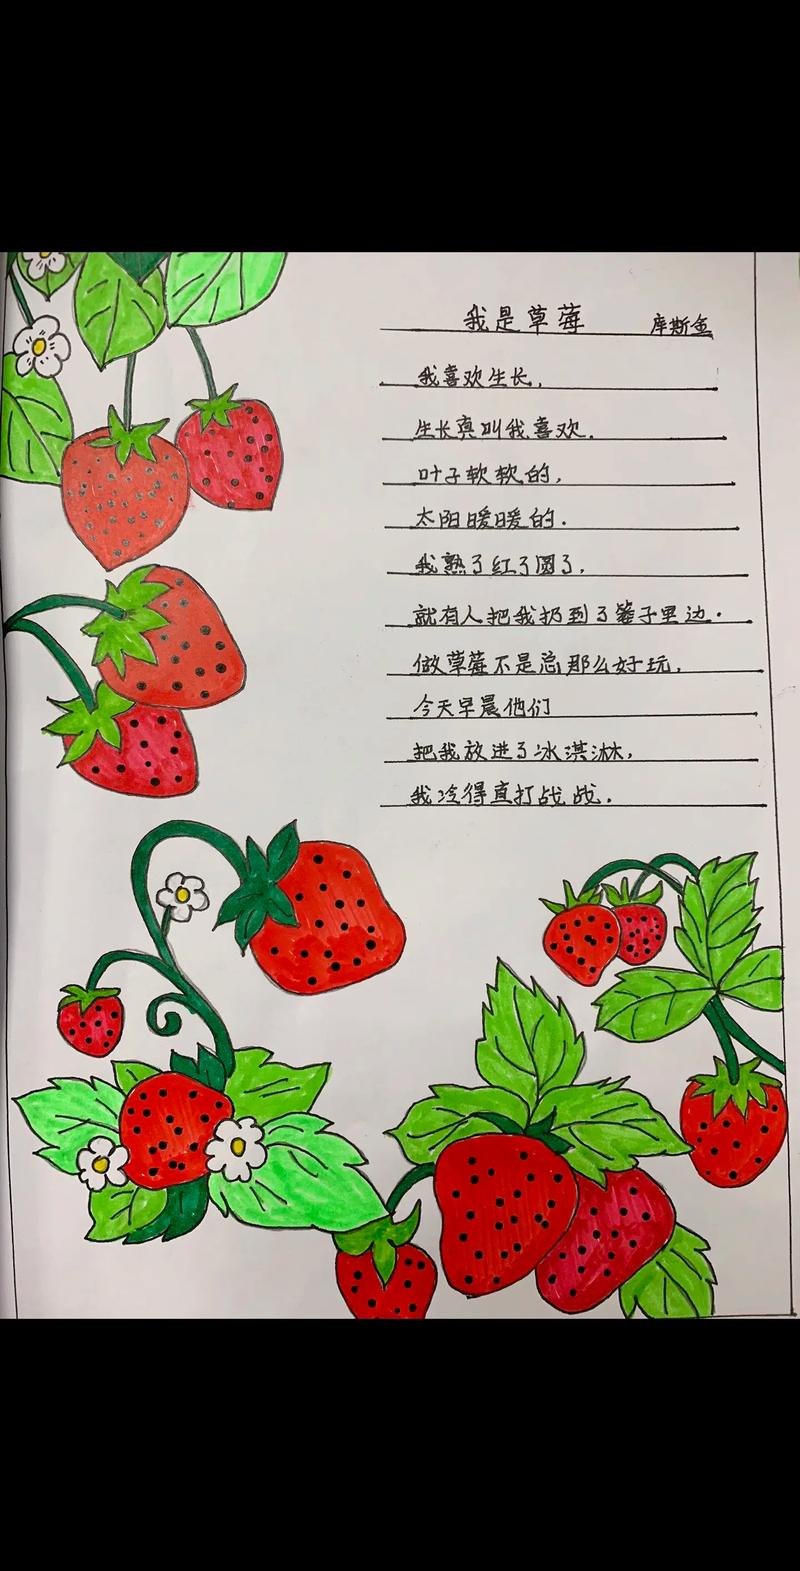 我是草莓 库斯金
我喜欢生长,
生长真叫我喜欢.
叶子软软的,
太阳暖暖的.
我熟了红了圆了,
就有人把我扔到了篓子里边.
做草莓不是总那么好玩,
今天早晨他们
把我放进了冰淇淋,
我冷得直打战战.